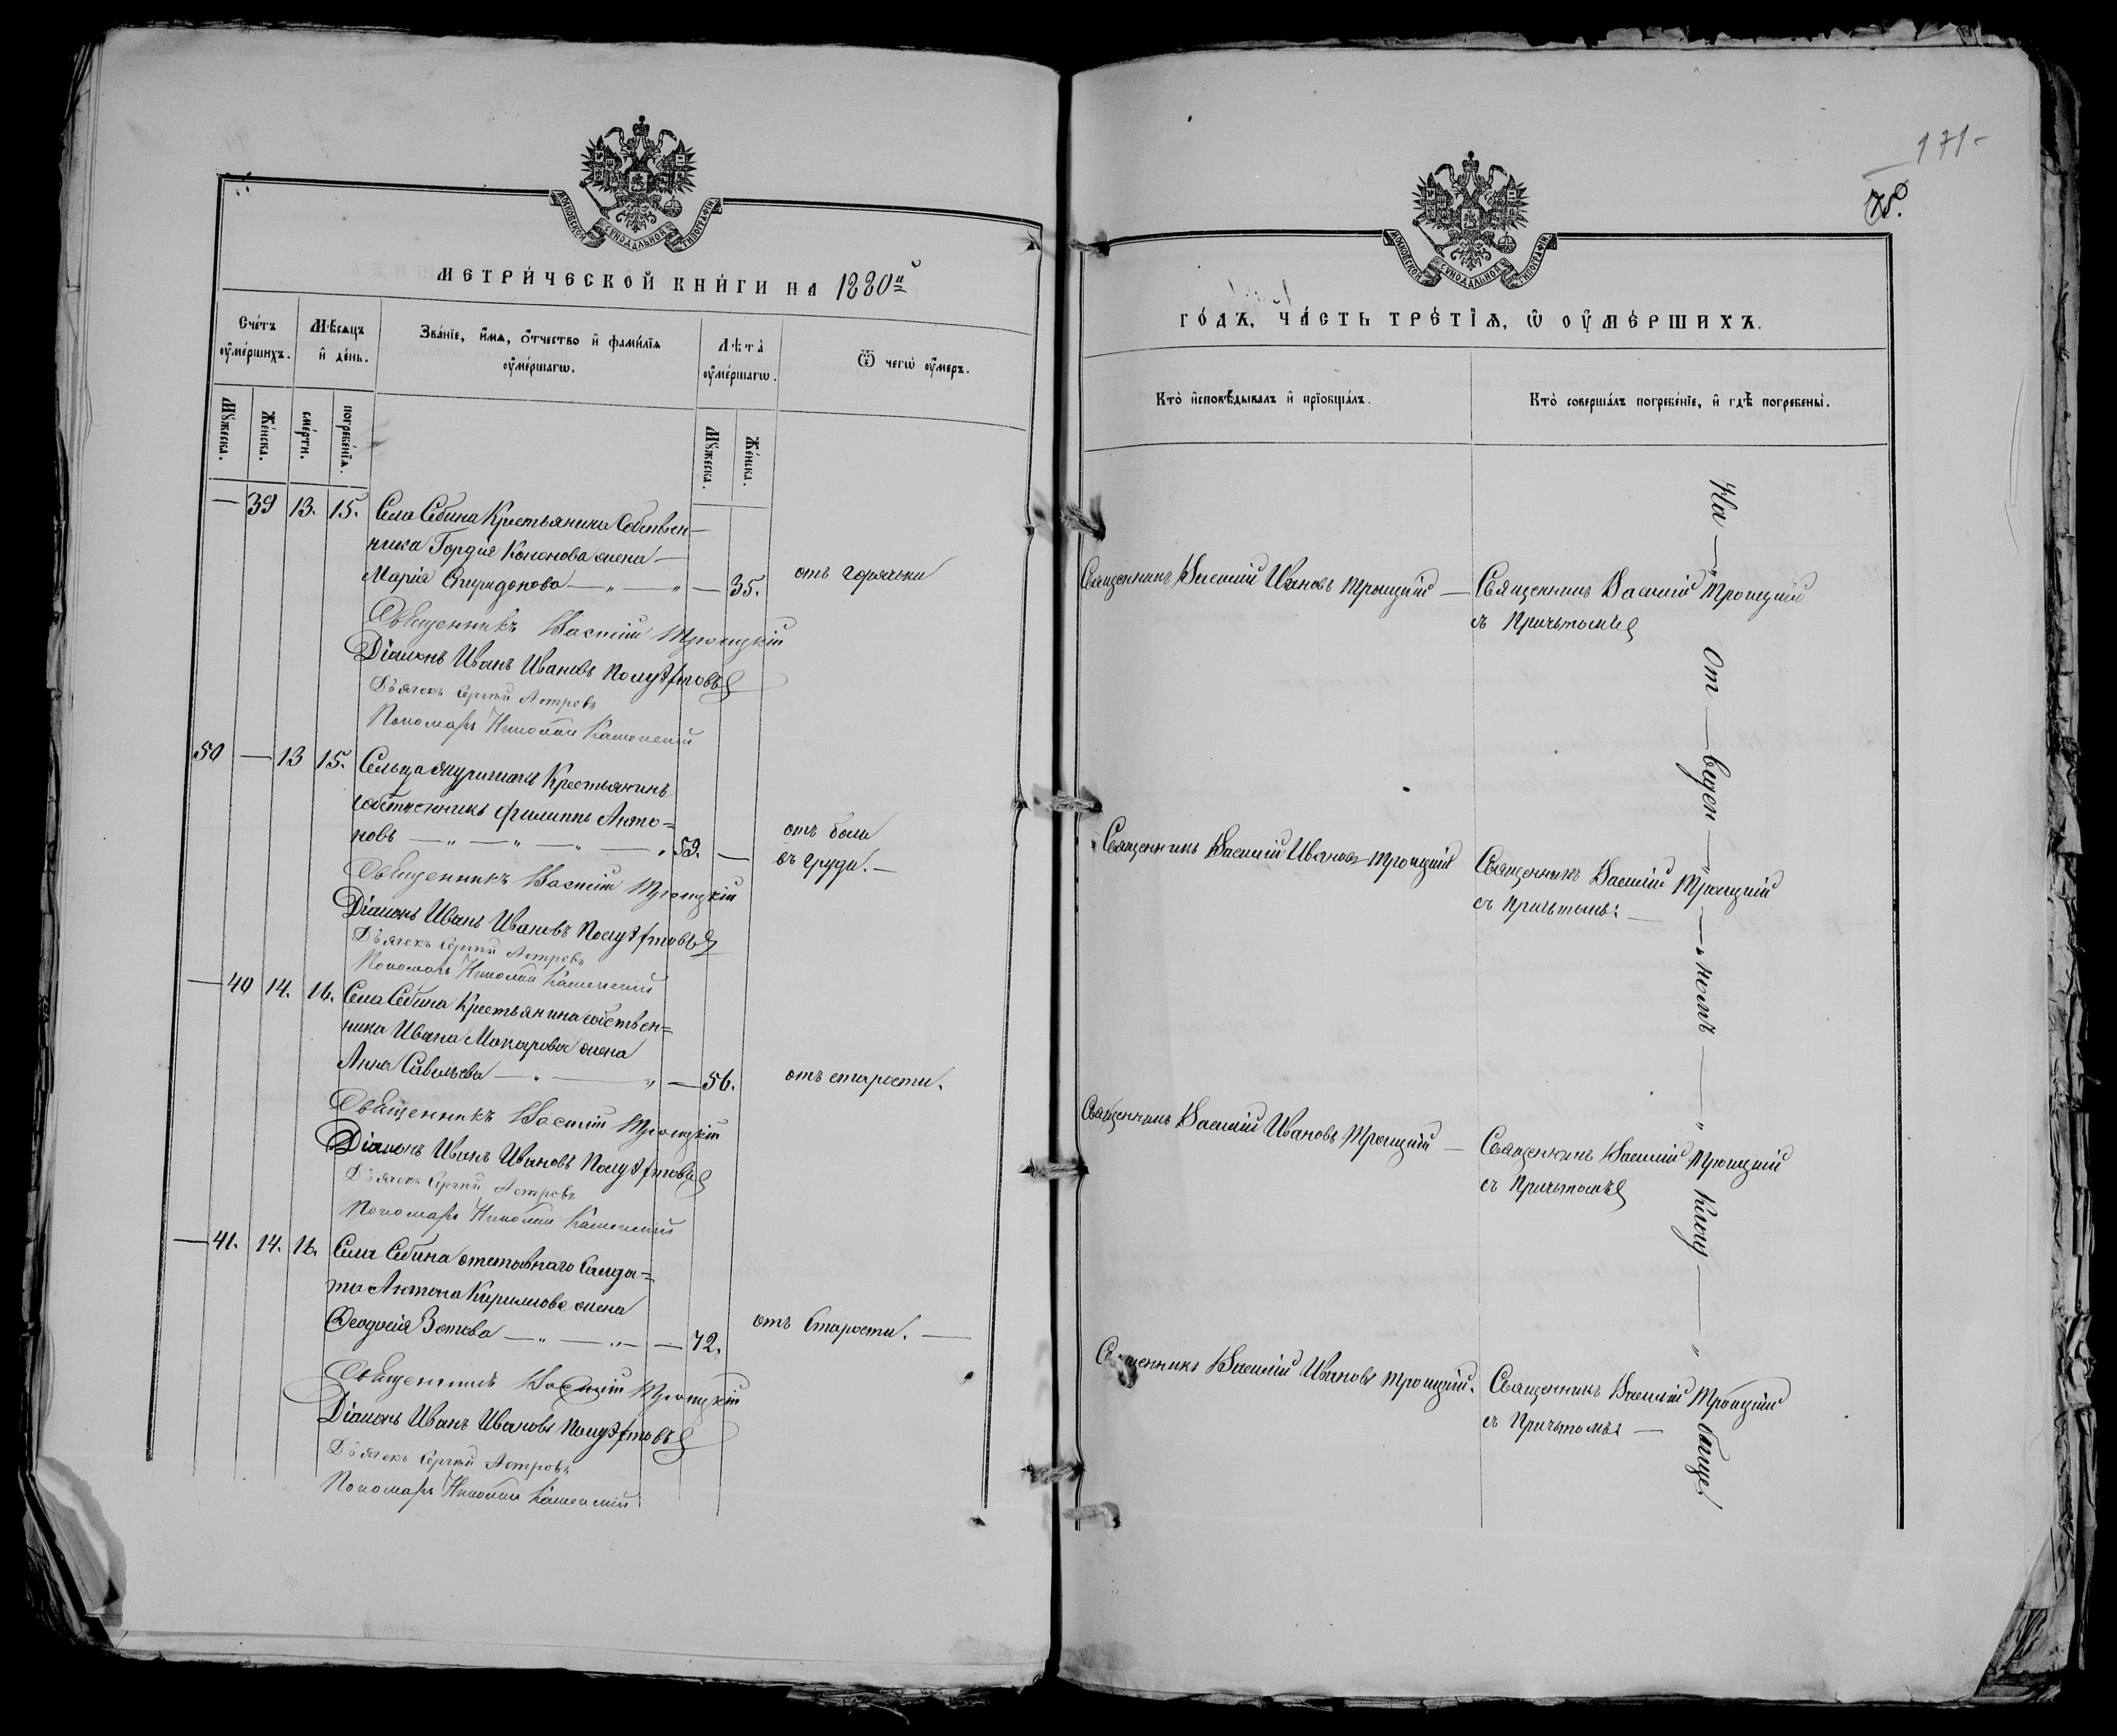 МОСКОВСКОЙ СѴНОДАЛЬНОЙ ТИПОГРАФІИ
МЕТРИ́ЧЕСКОЙ КНИ́ГИ НА 1880й
Сче́тъ ᲂу҆ме́ршихъ.
Мѣ́сяцъ и҆ де́нь.
Зва́нїе, и҆́мя, ѻ҆́тчество и҆ фамилїя ᲂу҆ме́ршагѡ.
Лѣта̀ ᲂу҆ме́ршагѡ.
Ѿ чегѡ̀ ᲂу҆́меръ.
Мꙋ́жеска.
Же́нска.
сме́рти.
погребе́нїѧ.
Мꙋ́жеска.
Же́нска.
— 39 13. 15. Села Себина Крестьянина Собствен-
ника Гордія Кононова жена —
Марія Спиридонова — „ — „ — 35. отъ горячки
Священникъ Василій Троицкій
Діаконъ Иванъ Ивановъ Полуэктовъ
Дьячекъ Сергѣй Астровъ
Пономарь Николай Каменскій
50 — 13 15. Сельца Крестьянинъ
собственникъ Филиппъ Анто=
новъ — „ — „ — „ — „ 59. — отъ боли
въ груди. —
Священникъ Василій Троицкій
Діаконъ Иванъ Ивановъ Полуэктовъ
Дьячекъ Сергѣй Астровъ
Пономарь Николай Каменскій
— 40 14. 16. Села Себина Крестьянина собствен=
ника Ивана Макарова жена
Анна Савельева — „ — „ — 56. отъ старости.
Священникъ Василій Троицкій
Діаконъ Иванъ Ивановъ Полуэктовъ
Дьячекъ Сергѣй Астровъ
Пономарь Николай Каменскій
— 41. 14. 16. Села Себина отставнаго Солда=
та Антона Кириллова жена
Ѳеодосія Зотова — „ — „ — — 72. отъ Старости. —
Священникъ Василій Троицкій
Діаконъ Иванъ Ивановъ Полуэктовъ
Дьячекъ Сергѣй Астровъ
Пономарь Николай Каменскій
171-
75.
МОСКОВСКОЙ СѴНОДАЛЬНОЙ ТИПОГРАФІИ
ГО́ДЪ, ЧА́СТЬ ТРЕ́ТЇѦ, Ѡ҆ ОУ҆МЕ́РШИХЪ.
Кто̀ и҆сповѣ́дывалъ и҆ прїобща́лъ.
Кто̀ соверша́лъ погребе́нїе, и҆ гдѣ̀ погребены̀.
Священникъ Василій Ивановъ Троицкій —
Священникъ Василій Троицкій
съ Причтомъ
Священникъ Василій Ивановъ Троицкій
Священникъ Василій Троицкій
съ Причтомъ: —
Священникъ Василій Ивановъ Троицкій —
Священникъ Василій Троицкій
съ Причтомъ
Священникъ Василій Ивановъ Троицкій.
Священникъ Василій Троицкій
съ Причтомъ —
На — „ От — веден — „ — „ номъ — „ Клад — „ бище